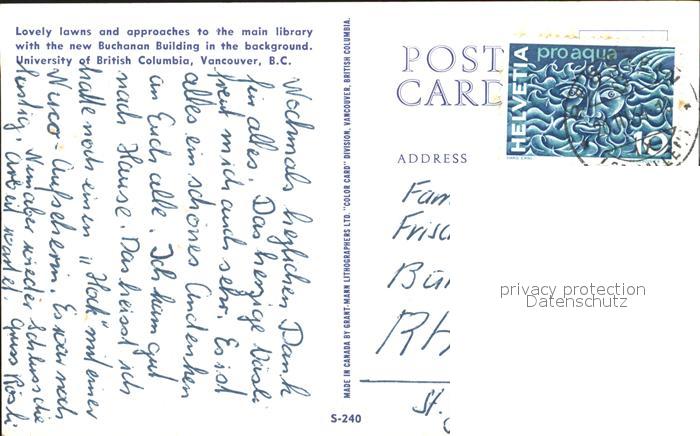 Lovely lawns and approaches to the main library
with the new Buchanan Building in the background.
University of British Columbia, Vancouver, B.C.
Nochmals herzlichen Dank
für alles. Das herzige Väsli
freut mich auch sehr. Es ist
alles ein schönes Andenken
an Euch alle. Ich kam gut
nach Hause. Das heisst ich
hatte noch einen "Hock" mit einer
Aufseherin. Es war noch
lustig. Nun aber wieder
wartet. Gruss Rösli
MADE IN CANADA BY GRANT-MANN LITHOGRAPHERS LTD. "COLOR CARD" DIVISION, VANCOUVER, BRITISH COLUMBIA.
S-240
POST
CARD
ADDRESS
HELVETIA
pro aqua
10
Fam
St.
privacy protection
Datenschutz